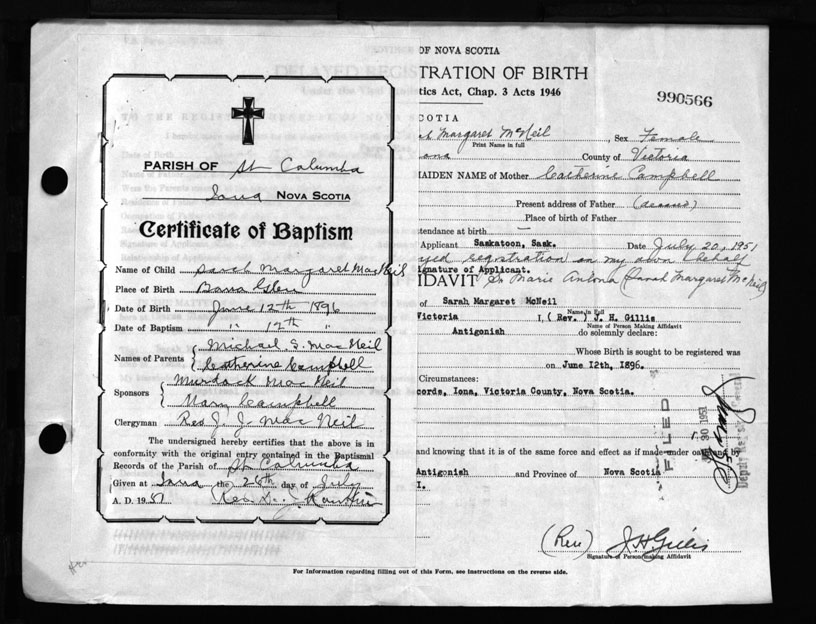 PARISH OF St Columba
Iona NOVA SCOTIA
Certificate of Baptism
Name of Child Sarah Margaret MacNeil
Place of Birth Barra Glen
Date of Birth June 12th 1896
Date of Baptism " 12th "
Names of Parents { Michael S. MacNeil
Catherine Campbell
Sponsors { Murdock MacNeil
Mary Campbell
Clergyman Rev J. J. MacNeil
The undersigned hereby certifies that the above is in
conformity with the original entry contained in the Baptismal
Records of the Parish of St Columba
Given at Iona the 26th day of July
A. D. 1951 (Rev. D. J.
OF NOVA SCOTIA
TRATION OF BIRTH
tics Act, Chap. 3 Acts 1946
990566
COTIA
ah Margaret McNeil, Sex Female
Print Name in full
ona County of Victoria
MAIDEN NAME of Mother Catherine Campbell
Present address of Father
Place of birth of Father
ttendance at birth —
Applicant Saskatoon, Sask. Date July 20, 1951
yed registration on my own behalf
ignature of Applicant.
IDAVIT Sr Marie (Sarah Margaret McNeil)
of Sarah Margaret McNeil
Name in Full
Victoria I, (Rev.) J. H. Gillis
Name of Person Making Affidavit
Antigonish do solemnly declare:
Whose Birth is sought to be registered was
on June 12th, 1896.
Circumstances:
cords, Iona, Victoria County, Nova Scotia.
FILED
30 1951
Deputy Registrar General
and knowing that it is of the same force and effect as if made under oath
Antigonish and Province of Nova Scotia
I.
(Rev) J H Gillis
Signature of Person making Affidavit
For Information regarding filling out of this Form, see Instructions on the reverse side.